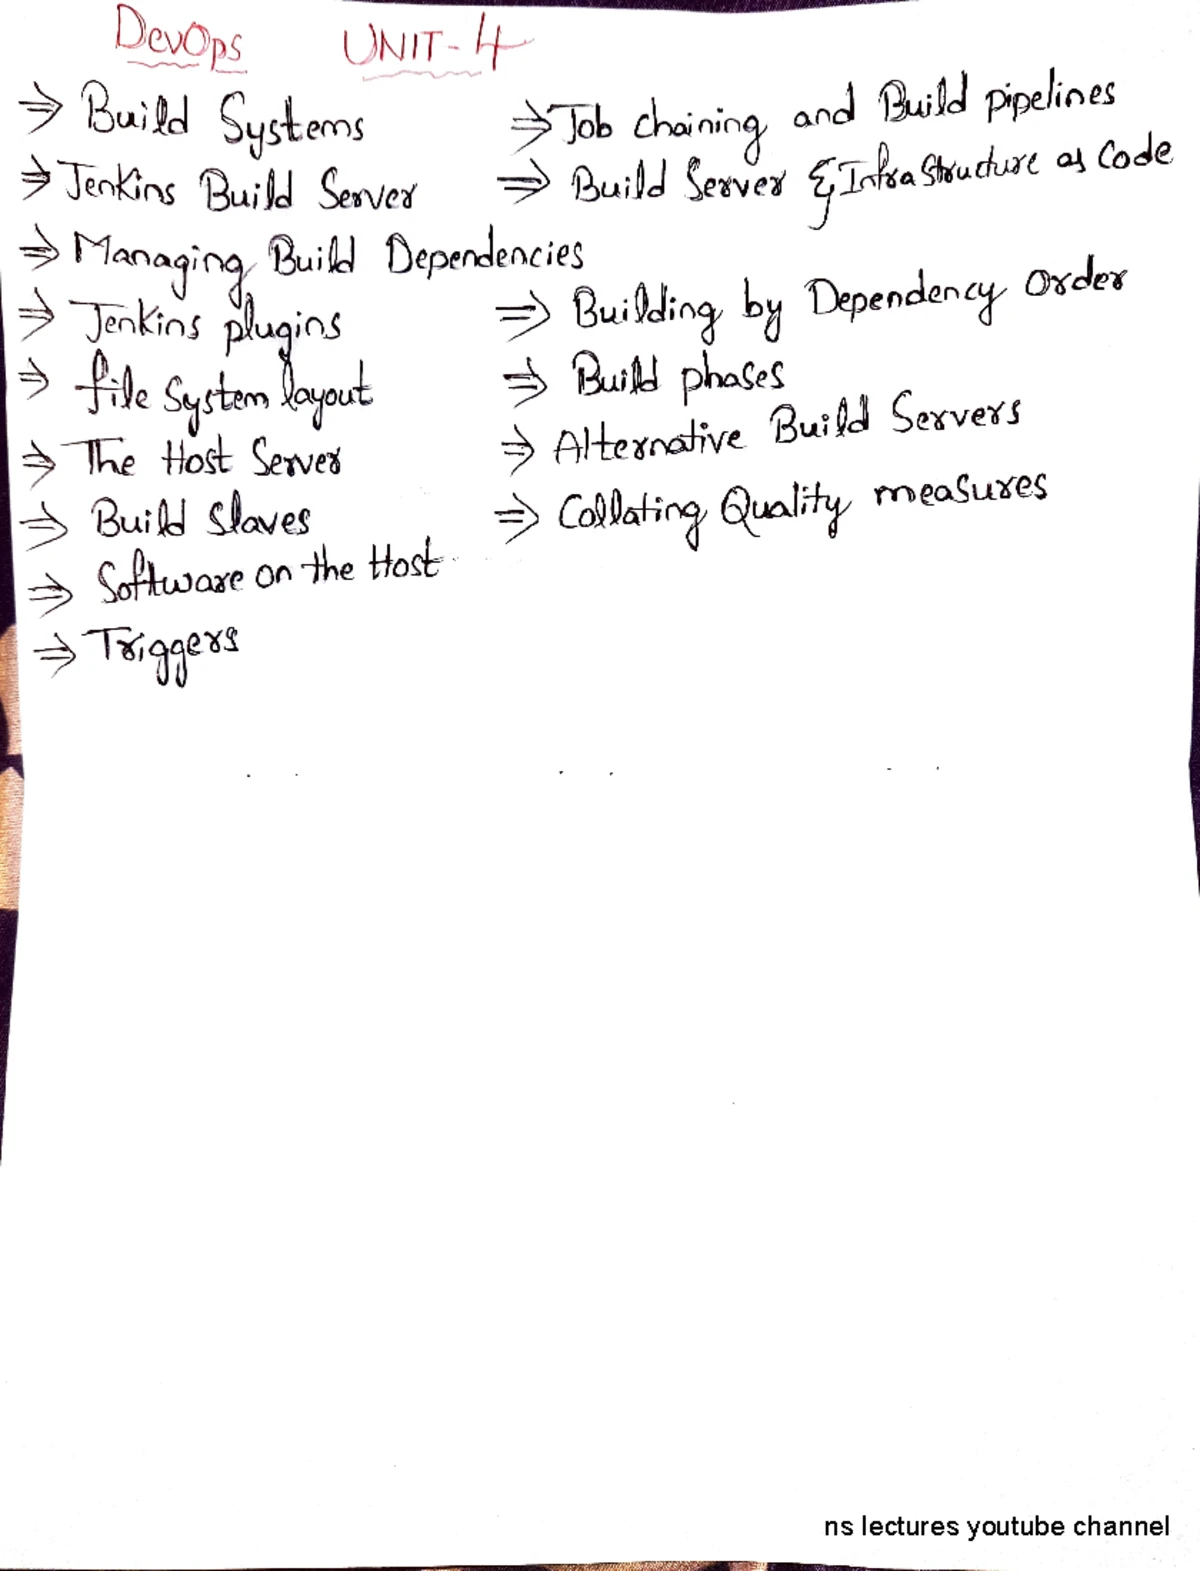 DevOps UNIT-4
⇒ Build Systems
⇒ Jenkins Build Server
⇒ Managing Build Dependencies
⇒ Jenkins plugins
⇒ file System layout
⇒ The Host Server
⇒ Build Slaves
⇒ Software on the Host
⇒ Triggers
⇒ Job chaining and Build pipelines
⇒ Build Server & Infrastructure as Code
⇒ Building by Dependency Order
⇒ Build phases
⇒ Alternative Build Servers
⇒ Collating Quality measures
ns lectures youtube channel